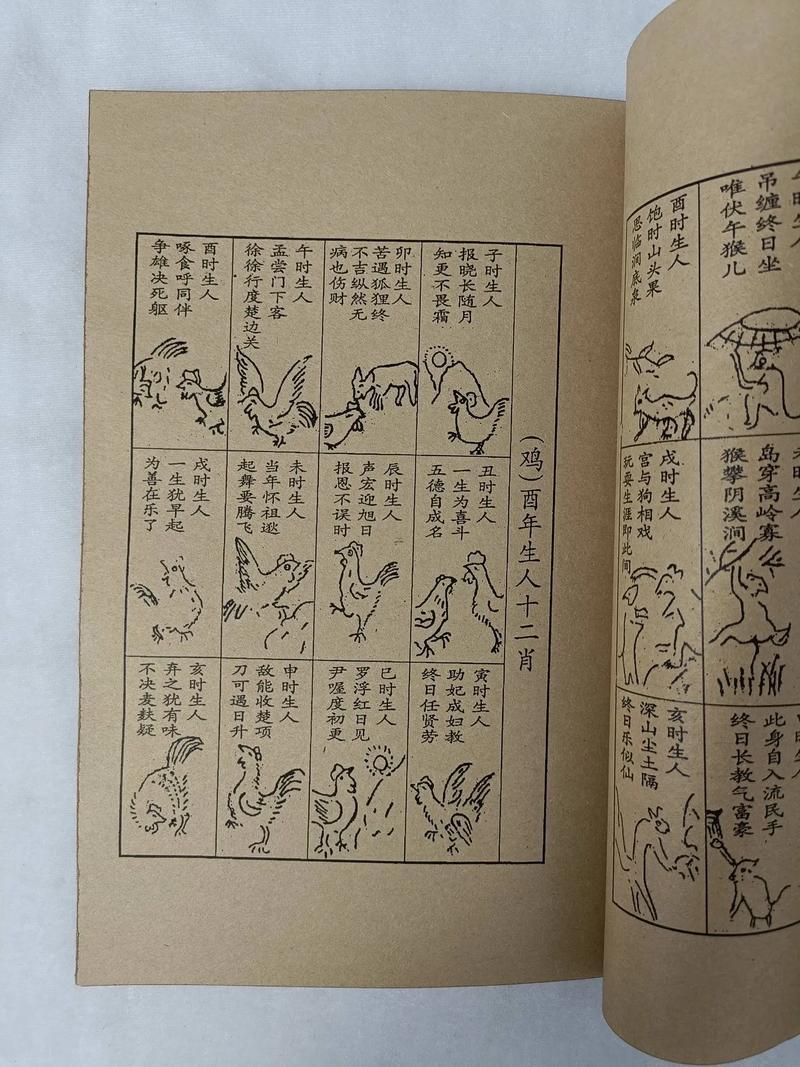 (鸡)酉年生人十二肖
子时生人
报晓长随月
知更不畏霜
丑时生人
一生为喜斗
五德自成名
寅时生人
助妃成妇教
终日任贤劳
卯时生人
苦遇狐狸终
不吉纵然无
病也伤财
辰时生人
声宏迎旭日
报恩不误时
巳时生人
罗浮红日见
尹喔度初更
午时生人
孟尝门下客
徐徐行度楚边关
未时生人
当年怀祖逖
起舞要腾飞
申时生人
敌能收楚项
刀可遇日升
酉时生人
啄食呼同伴
争雄决死躯
戌时生人
一生犹早起
为善在乐了
亥时生人
弃之犹有味
不决麦麸疑
午时生人
吊缠终日坐
唯伏午猴儿
未时生人
岛穿高岭寡
猴攀阴溪涧
此身自入流民手
终日长教气富豪
酉时生人
饱时山头果
思临涧底泉
戌时生人
宫与狗相戏
玩耍生涯即此间
亥时生人
深山尘土隔
终日乐似仙